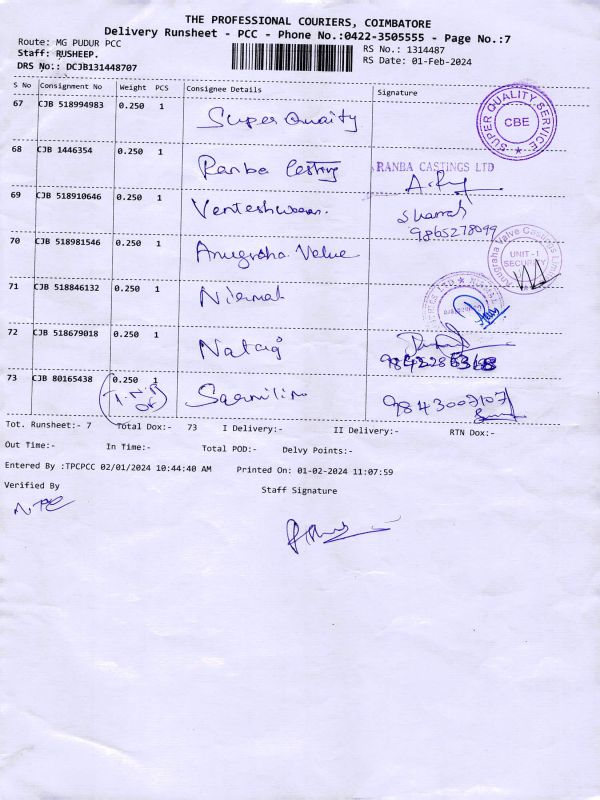 THE PROFESSIONAL COURIERS, COIMBATORE
Delivery Runsheet - PCC - Phone No.:0422-3505555 - Page No.:7
Route: MG PUDUR PCC
RS No.: 1314487
Staff: RUSHEEP.
RS Date: 01-Feb-2024
DRS No.: DCJB131448707
S No Consignment No Weight PCS Consignee Details Signature
67 CJB 518994983 0.250 1 Super Quality
SUPER QUALITY SERVICE CBE
68 CJB 1446354 0.250 1 Ranba Casting RANBA CASTINGS LTD
69 CJB 518910646 0.250 1 Venteshwaran. Sharrah
9865278099
70 CJB 518981546 0.250 1 Anugraha Value
Anugraha Valve Castings Limited UNIT -1 SECURITY
71 CJB 518846132 0.250 1 Nirmal
72 CJB 518679018 0.250 1 Natraj
73 CJB 80165438 0.250 1
Tot. Runsheet:- 7 Total Dox:- 73 I Delivery:- II Delivery:- RTN Dox:-
Out Time:- In Time:- Total POD:- Delvy Points:-
Entered By :TPCPCC 02/01/2024 10:44:40 AM Printed On: 01-02-2024 11:07:59
Verified By Staff Signature